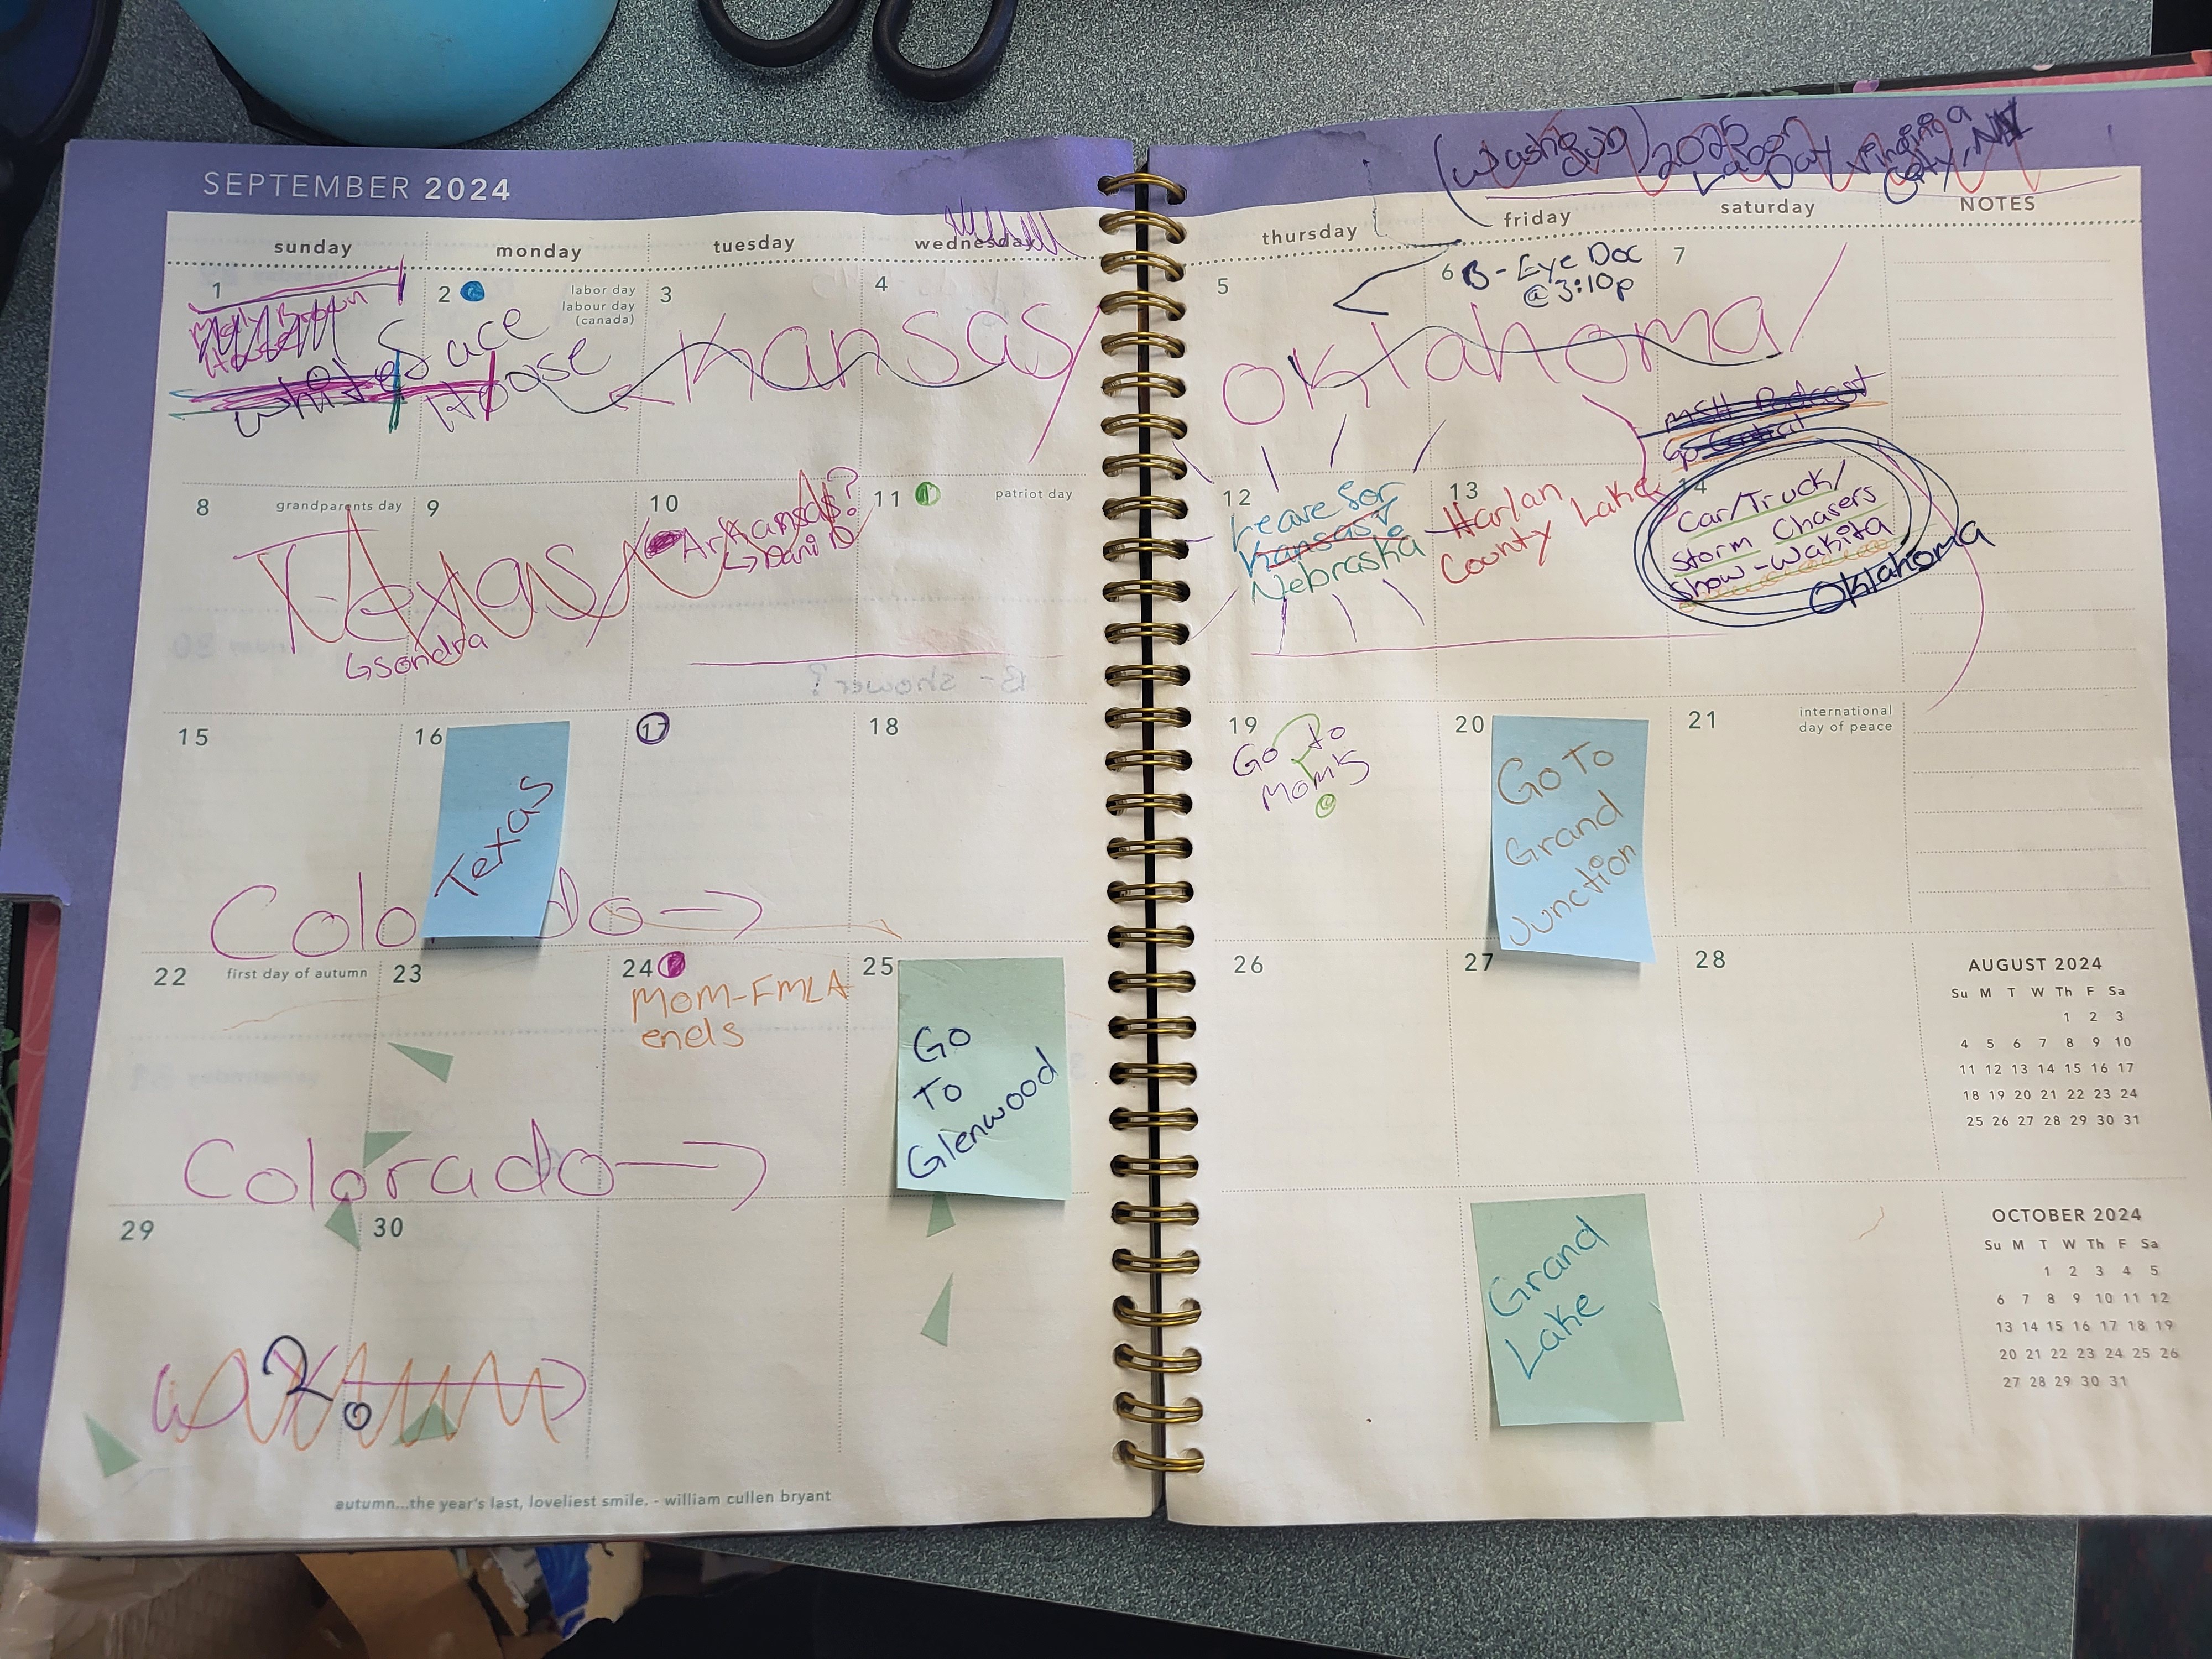 SEPTEMBER 2024
2025
Labor
Day
Virginia
City, NV
sunday
monday
tuesday
wednesday
thursday
friday
saturday
NOTES
1
Molly Brown
House
White
2
labor day
labour day
(canada)
House
3
Kansas
4
5
Oklahoma
6
B - Eye Doc
@ 3:10p
7
MSH Podcast
8
grandparents day
Texas
↳ Sondra
9
10
Arkansas?
↳ Dani D
11
patriot day
12
Leave for
Kansas
Nebraska
13
Harlan
County Lake
14
Car/Truck/
Storm Chasers
Show - Wakita
Oklahoma
B - Shower?
15
Colo do →
16
Texas
17
18
19
Go to
Mom's
20
Go To
Grand
Junction
21
international
day of peace
22
first day of autumn
Colorado →
23
24
Mom-FMLA
ends
25
Go
To
Glenwood
26
27
28
AUGUST 2024
Su M T W Th F Sa
1 2 3
4 5 6 7 8 9 10
11 12 13 14 15 16 17
18 19 20 21 22 23 24
25 26 27 28 29 30 31
29
?
30
Grand
Lake
OCTOBER 2024
Su M T W Th F Sa
1 2 3 4 5
6 7 8 9 10 11 12
13 14 15 16 17 18 19
20 21 22 23 24 25 26
27 28 29 30 31
autumn...the year's last, loveliest smile. - william cullen bryant